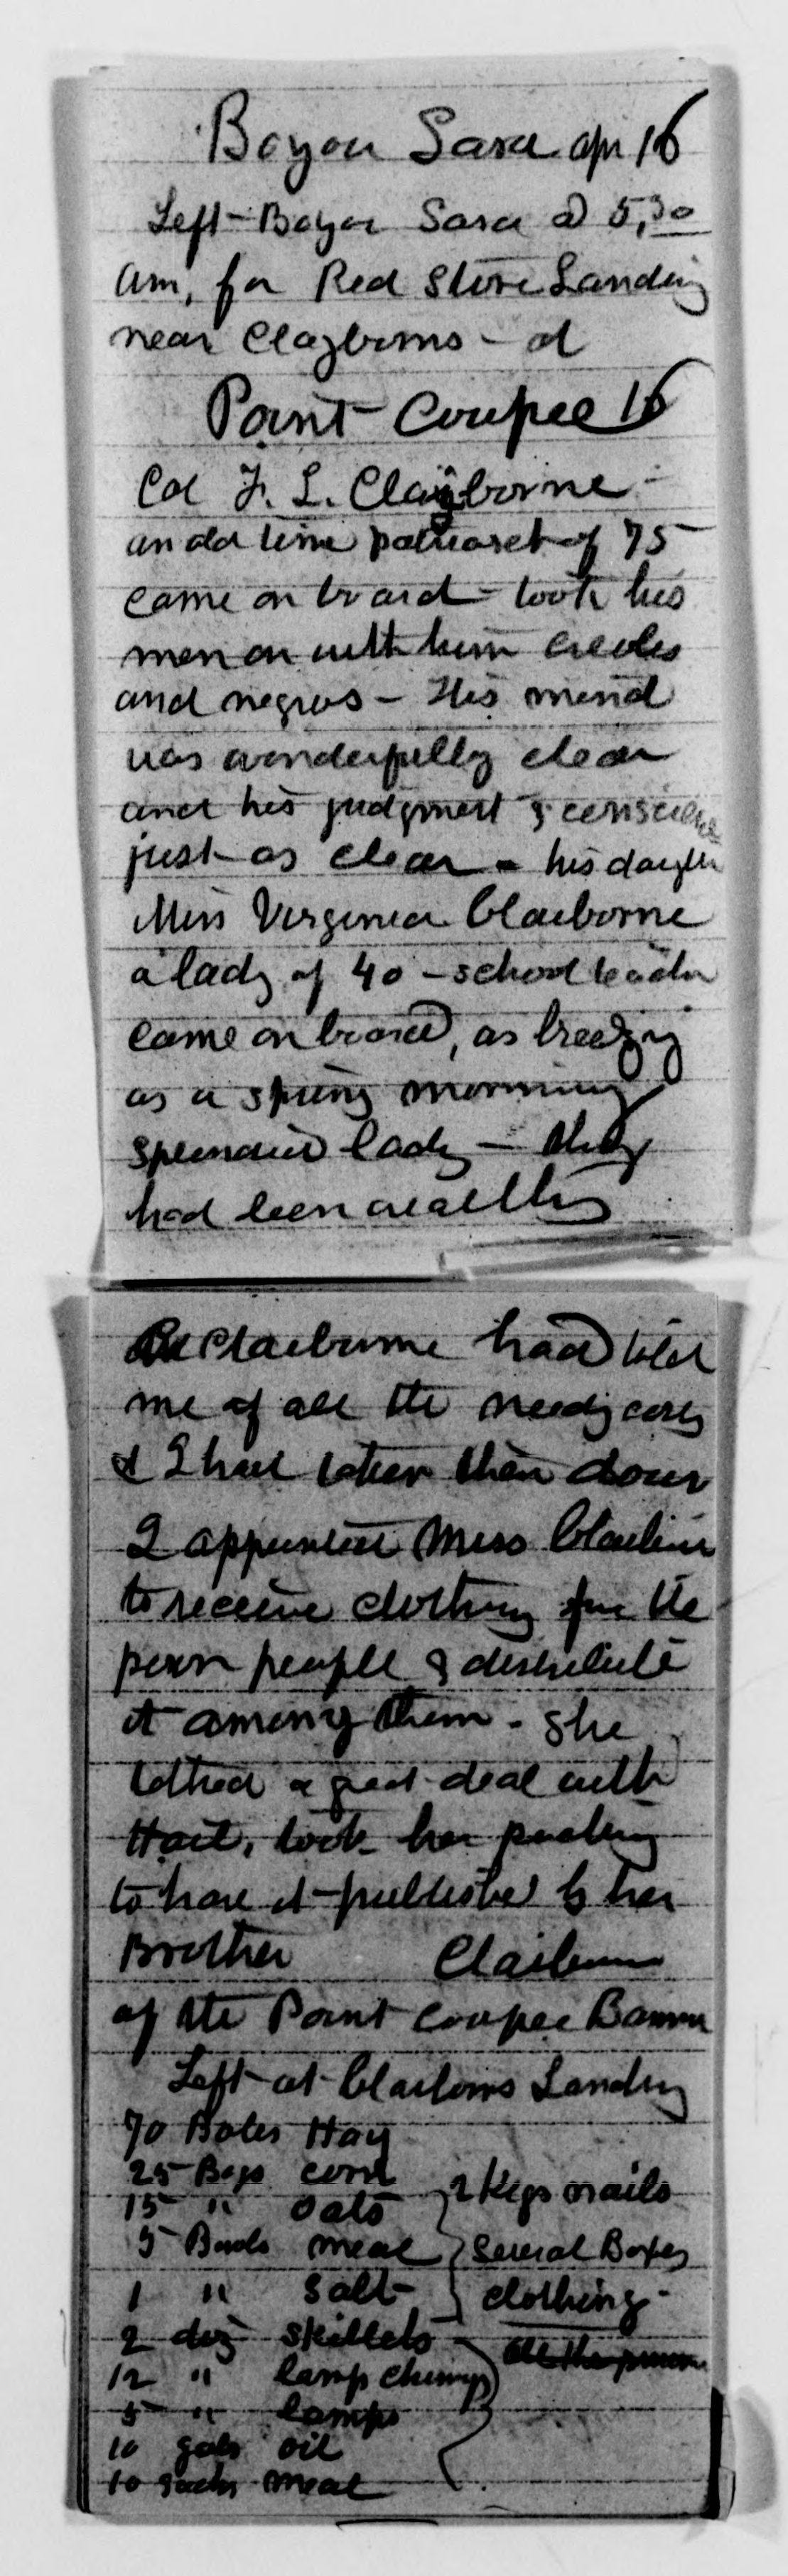 Bayou Sara apr 16
Left Bayou Sara @ 5,30
am, for Red Store Landing
near Clayborns - at
Point Coupee 16
Col F. L. Clayborne -
an old time patriarch of 75
came on board - took his
men on with him creoles
and negros - His mind
was wonderfully clear
and his judgment & conscience
just as clear - his daughter
Miss Virginia Claiborne
a lady of 40 - school teacher
came on board, as breezy
as a spring morning
splendid lady - they
had been wealthy
Claiborne had told
me of all the needy cases
& I had taken them down
I appointed Miss Claiborne
to receive clothing for the
poor people & distribute
it among them - She
talked a great deal with
took her
to have it published by her
Brother Claiborne
of the Point Coupee Banner
Left at Claiborns Landing
70 Bales Hay
25 Bags corn
15 " oats } 2 Kegs nails
5 Barls meal } Several Boxes
1 " Salt } clothing -
2 doz skillets
12 " lamp chimys
5 " lamps
10 gals oil
10 sacks meal